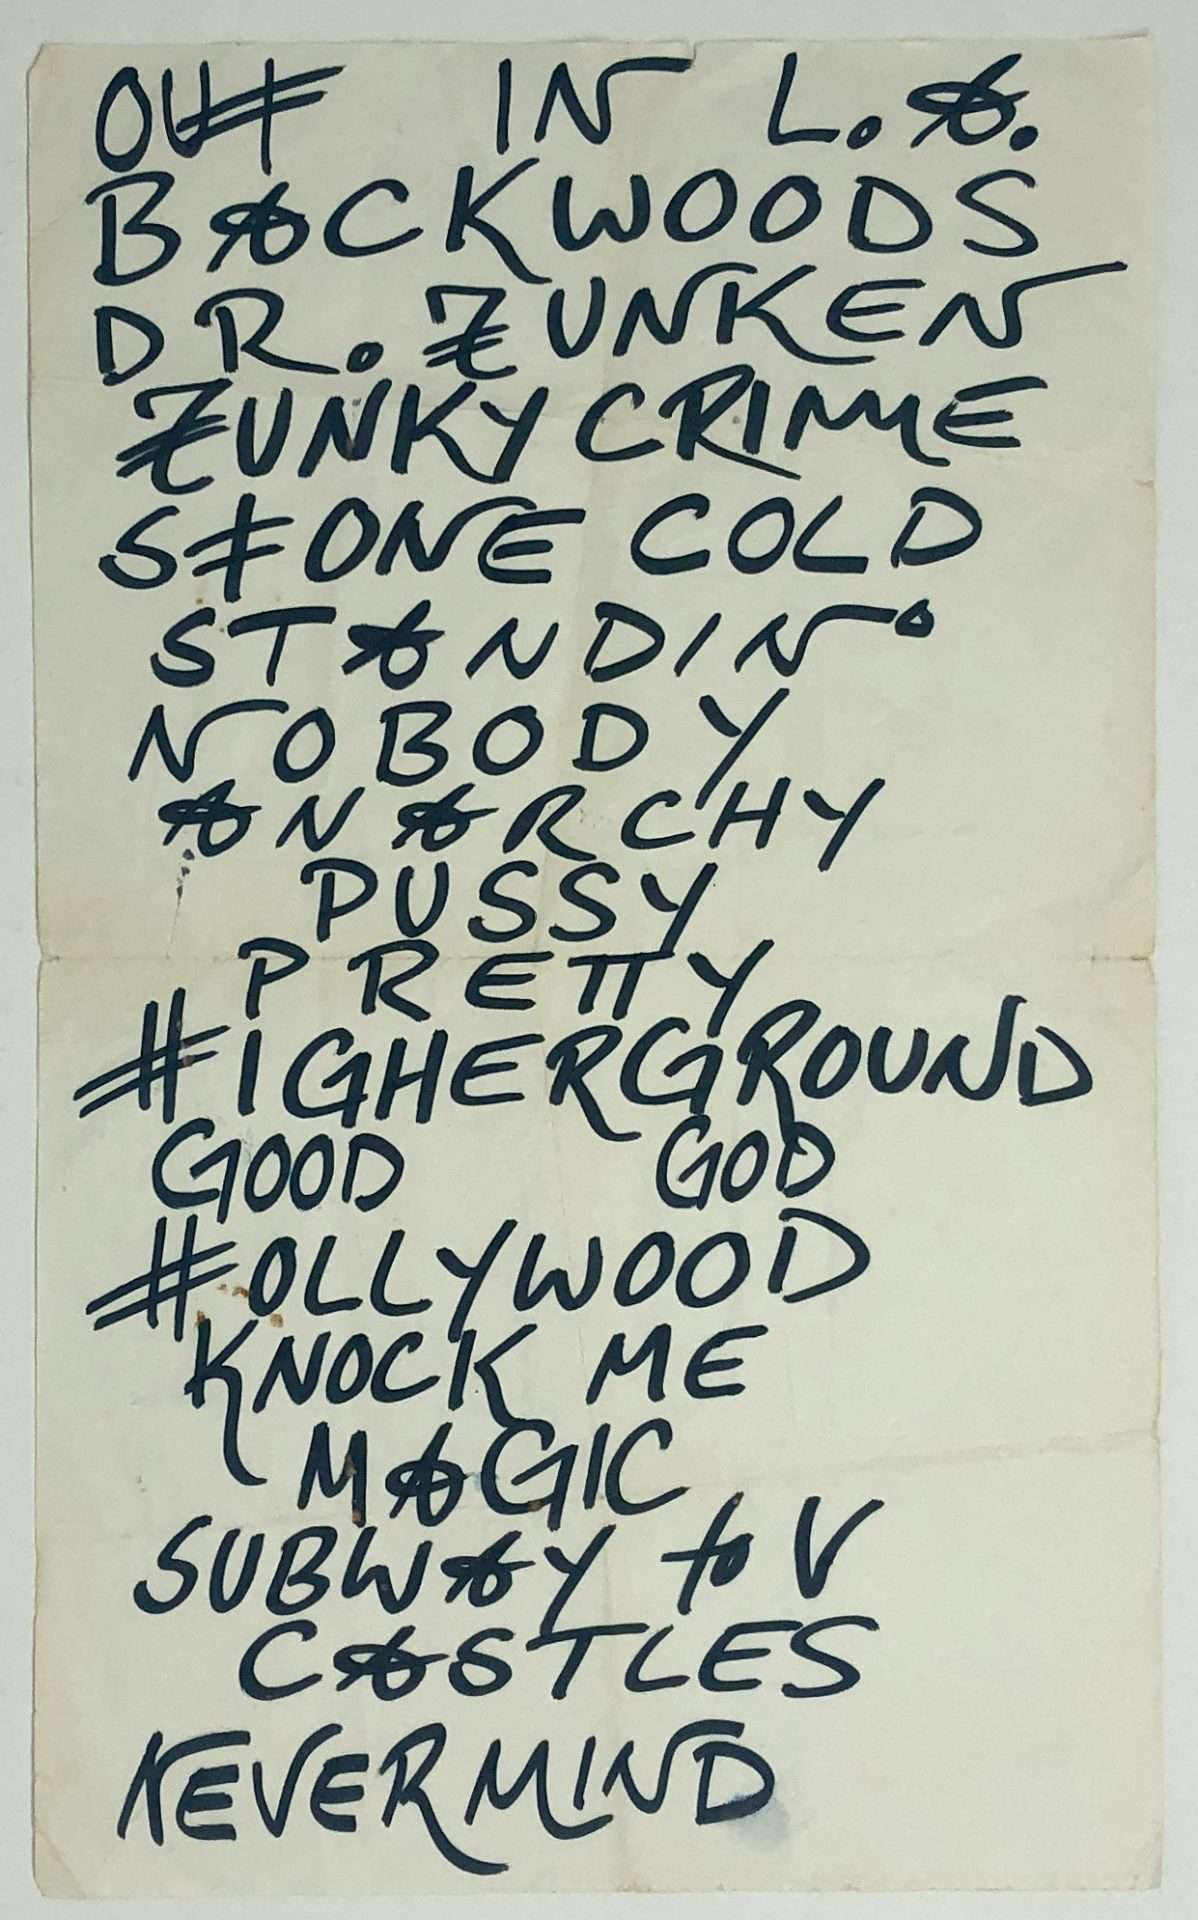 OUT IN L.A.
BACKWOODS
DR. FUNKEN
FUNKY CRIMME
STONE COLD
STANDIN'
NOBODY
ANARCHY
PUSSY
PRETTY
HIGHERGROUND
GOOD GOD
HOLLYWOOD
KNOCK ME
MAGIC
SUBWAY to V
CASTLES
NEVERMIND